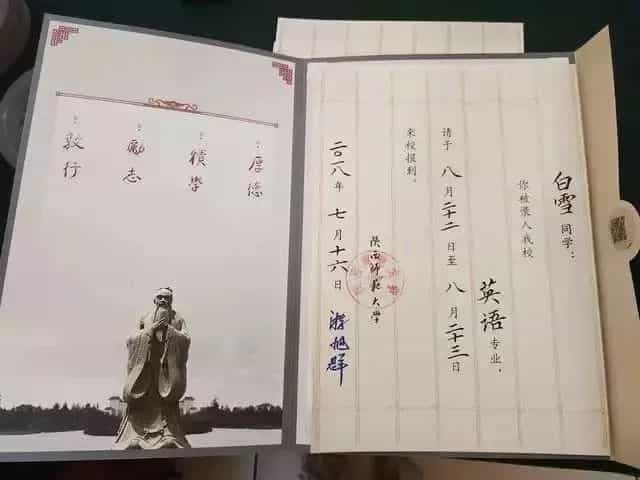 白雪同学：
你被录入我校
英语专业，
请于八月二十二日至八月二十三日
来校报到。
陝西師範大學
二〇一八年七月十六日
游旭群
厚德
積學
勵志
敦行